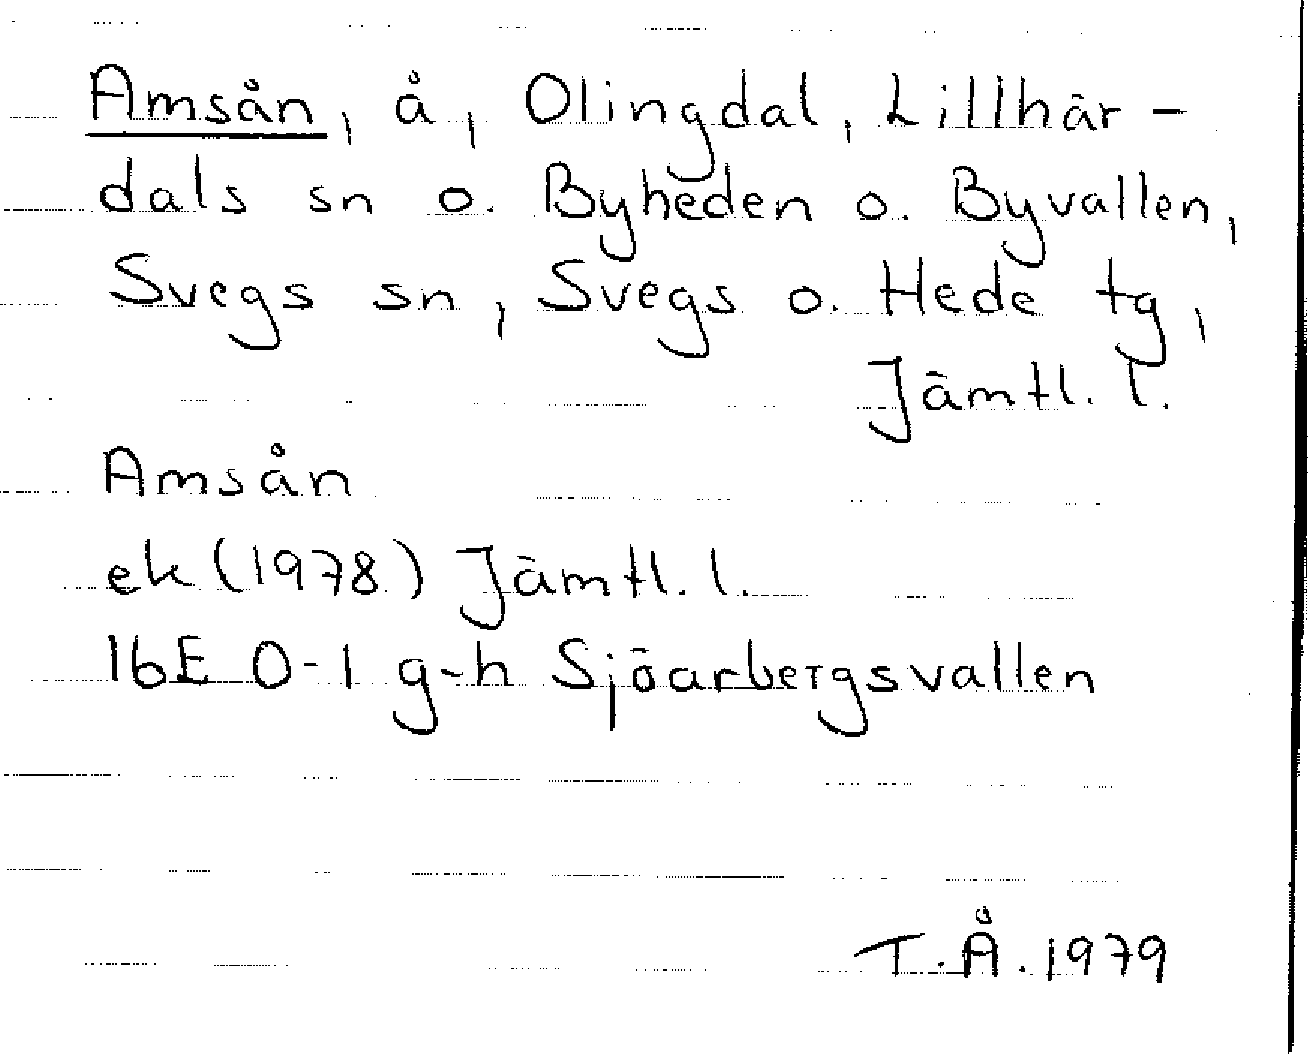 Amsån, å, Olingdal, Lillhär-
dals sn o. Byheden o. Byvallen,
Svegs sn, Svegs o. Hede tg,
Jämtl. l.
Amsån
ek (1978) Jämtl. l.
16E 0-1 g-h Sjöarbergsvallen
T.Å. 1979